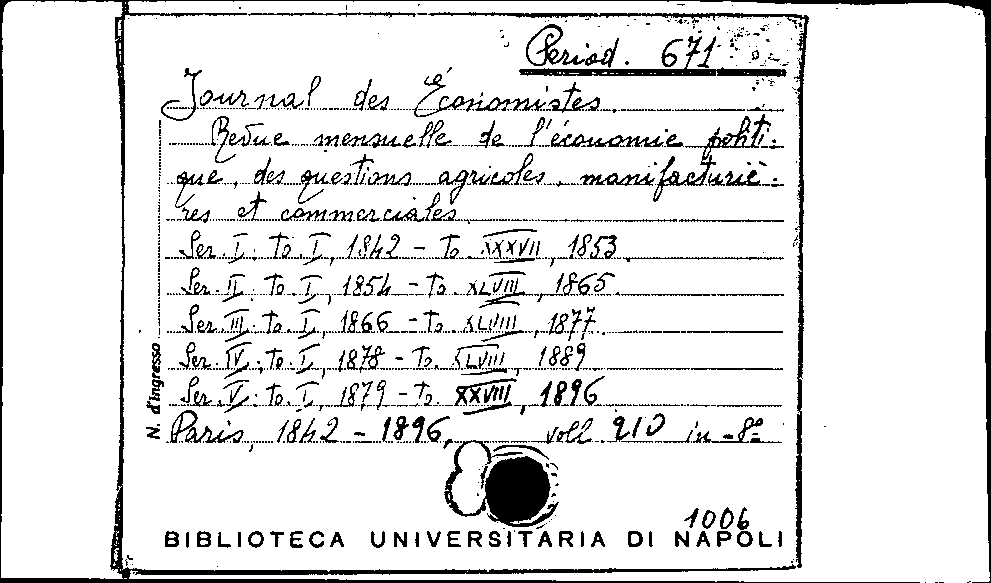 Period. 671
Journal des Économistes.
Revue mensuelle de l'économie politi-
que, des questions agricoles, manifacturiè-
res et commerciales.
Ser. I: To. I, 1842 - To. XXXVII, 1853.
Ser. II: To. I, 1854 - To. XLVIII, 1865.
Ser. III: To. I, 1866 - To. XLVIII, 1877.
Ser. IV: To. I, 1878 - To. XLVIII, 1889
Ser. V: To. I, 1879 - To. XXVIII, 1896
N. d'Ingresso
Paris, 1842 - 1896, voll 210 in-8°
1006
BIBLIOTECA UNIVERSITARIA DI NAPOLI